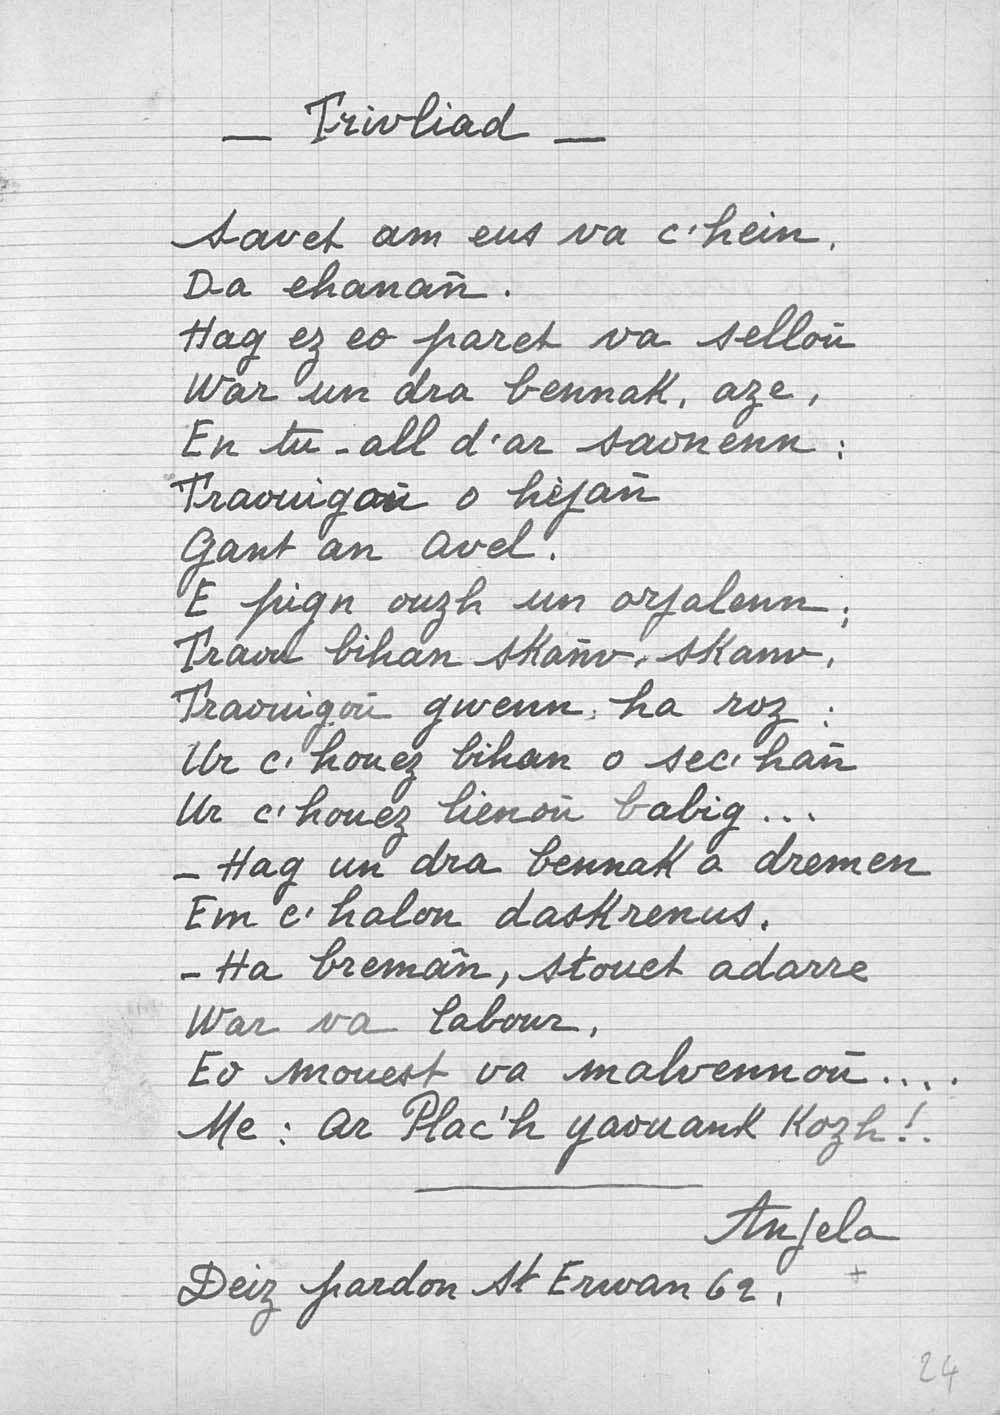 _ Trivliad _
Savet am eus va c'hein,
Da ehanañ.
Hag ez eo paret vaselloù
War un dra bennak, aze,
En tu-all d'ar saonenn :
Traouigoù o hejañ
Gant an avel.
E pign ouzh un orjalenn ;
Traou bihan skañv, skanv,
Traouigoù gwenn, ha roz :
Ur c'houez bihan o sec'hañ
Ur c'houez lienoù babig ...
_ Hag un dra bennak a dremen
Em c'halon daskrenus.
- Ha bremañ, stouet adarre
War va labour,
Eo mouest va malvennoù ....
Me : Ar Plac'h yaouank kozh !.
Anjela
Deiz pardon St Erwan 62.
24